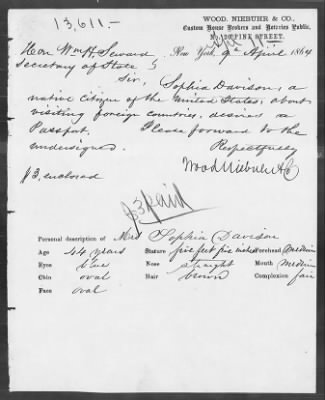 13,611—
WOOD, NIEBUHR & CO.,
Custom House Brokers and Notaries Public,
No. 18 PINE STREET.
New York, 9th April 1864
Hon Wm H. Seward
Secretary of State
Sir, Sophia Davison, a
native citizen of the United States, about
visiting foreign countries, desires a
Passport. Please forward to the
undersigned.
Respectfully
Wood Niebuhr & Co
$3, enclosed
$3 paid
Personal description of Mrs Sophia Davison
Age 44 years Stature five feet five inches Forehead medium
Eyes blue Nose straight Mouth medium
Chin oval Hair brown Complexion fair
Face oval